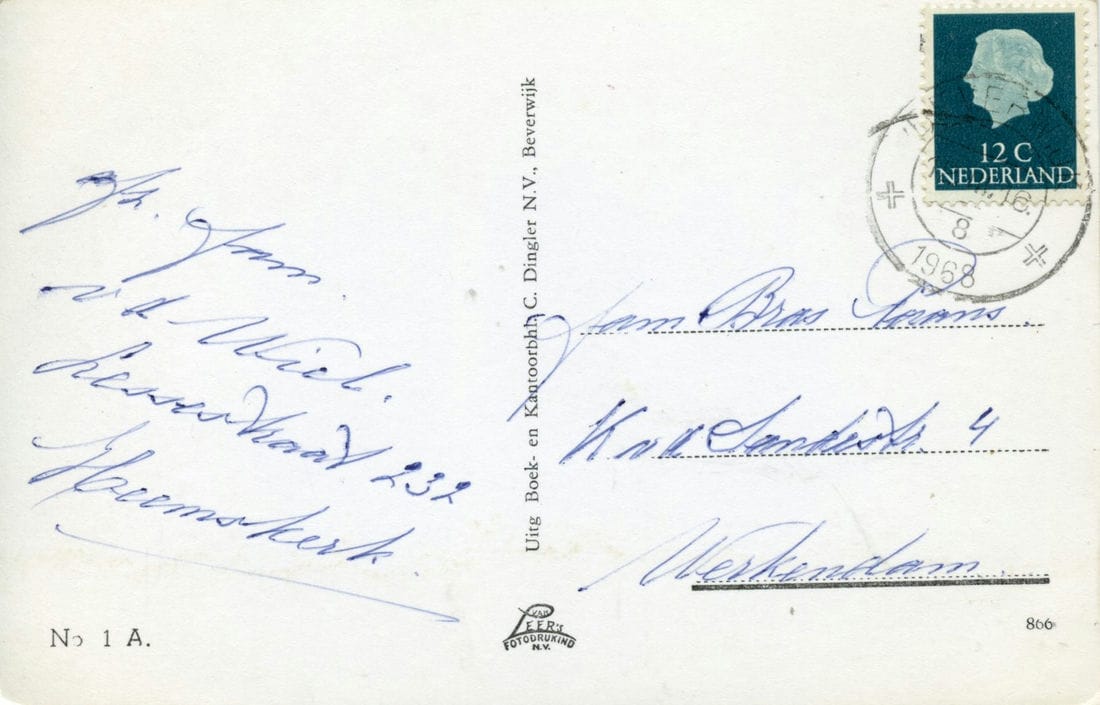 Afz. Fam
v d Wiel.
Lessestraat 232
Heemskerk.
Uitg Boek- en Kantoorbhh C. Dingler N.V., Beverwijk
12 C
NEDERLAND
16.
8
1968
Fam Bras
K v d Sandestr. 4
Werkendam
No 1 A.
VAN
LEER's
FOTODRUKIND
N.V.
866